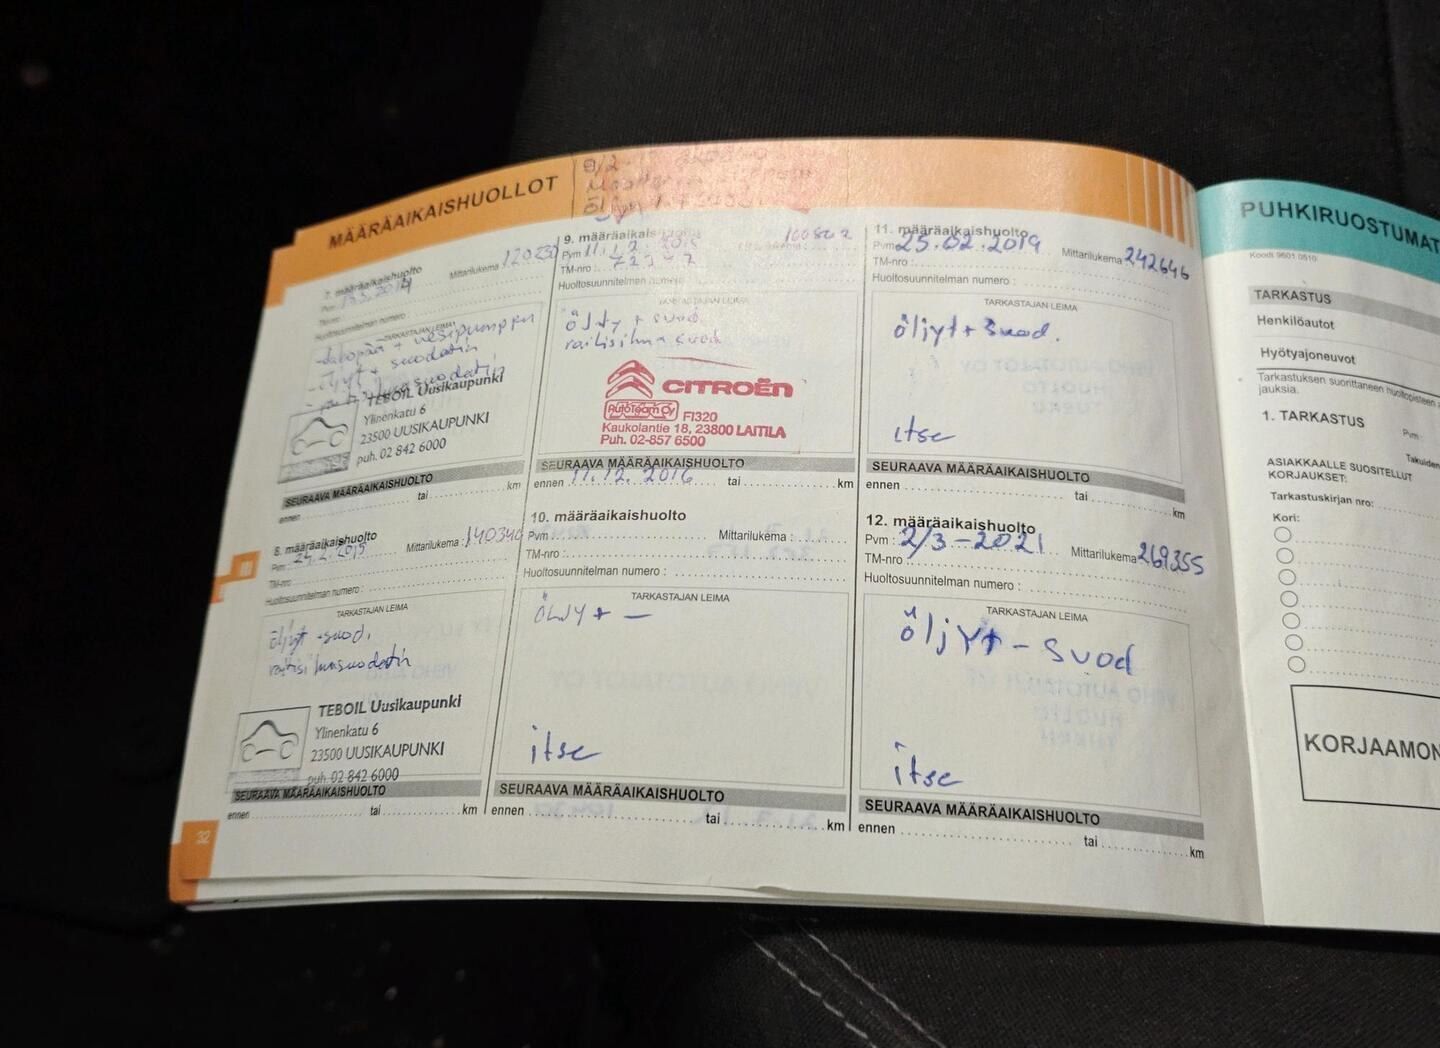 MÄÄRÄAIKAISHUOLLOT
7. määräaikaishuolto
Pvm : Mittarilukema :
TM-nro :
Huoltosuunnitelman numero :
TARKASTAJAN LEIMA
+ vesipumppu
- öljyt + suodatin
TEBOIL Uusikaupunki
Ylinenkatu 6
23500 UUSIKAUPUNKI
puh. 02 842 6000
SEURAAVA MÄÄRÄAIKAISHUOLTO
ennen tai km
8. määräaikaishuolto
Pvm : 24.2.2015 Mittarilukema : 140340
TM-nro
Huoltosuunnitelman numero :
TARKASTAJAN LEIMA
öljyt + suod.
raitisilmasuodatin
TEBOIL Uusikaupunki
Ylinenkatu 6
23500 UUSIKAUPUNKI
puh. 02 842 6000
SEURAAVA MÄÄRÄAIKAISHUOLTO
ennen tai km
9. määräaikaishuolto
Pvm 11.12.2015
TM-nro :
Huoltosuunnitelman numero
TARKASTAJAN LEIMA
öljy + suod
raitisilma suod
CITROËN
AutoTeam Oy FI320
Kaukolantie 18, 23800 LAITILA
Puh. 02-857 6500
SEURAAVA MÄÄRÄAIKAISHUOLTO
ennen 11.12.2016 tai km
10. määräaikaishuolto
Pvm : Mittarilukema :
TM-nro :
Huoltosuunnitelman numero :
TARKASTAJAN LEIMA
ÖLJY + —
itse
SEURAAVA MÄÄRÄAIKAISHUOLTO
ennen tai km
11. määräaikaishuolto
Pvm 25.02.2019 Mittarilukema : 242646
TM-nro :
Huoltosuunnitelman numero :
TARKASTAJAN LEIMA
öljyt + suod.
itse
SEURAAVA MÄÄRÄAIKAISHUOLTO
ennen tai km
12. määräaikaishuolto
Pvm : 2/3-2021 Mittarilukema 269355
TM-nro
Huoltosuunnitelman numero :
TARKASTAJAN LEIMA
öljyt - suod
itse
SEURAAVA MÄÄRÄAIKAISHUOLTO
ennen tai km
32
PUHKIRUOSTUMAT
Koodi 9601 0510
TARKASTUS
Henkilöautot
Hyötyajoneuvot
Tarkastuksen suorittaneen huoltopisteen
jauksia.
1. TARKASTUS
Pvm :
ASIAKKAALLE SUOSITELLUT
KORJAUKSET:
Tarkastuskirjan nro:
Kori:
KORJAAMON